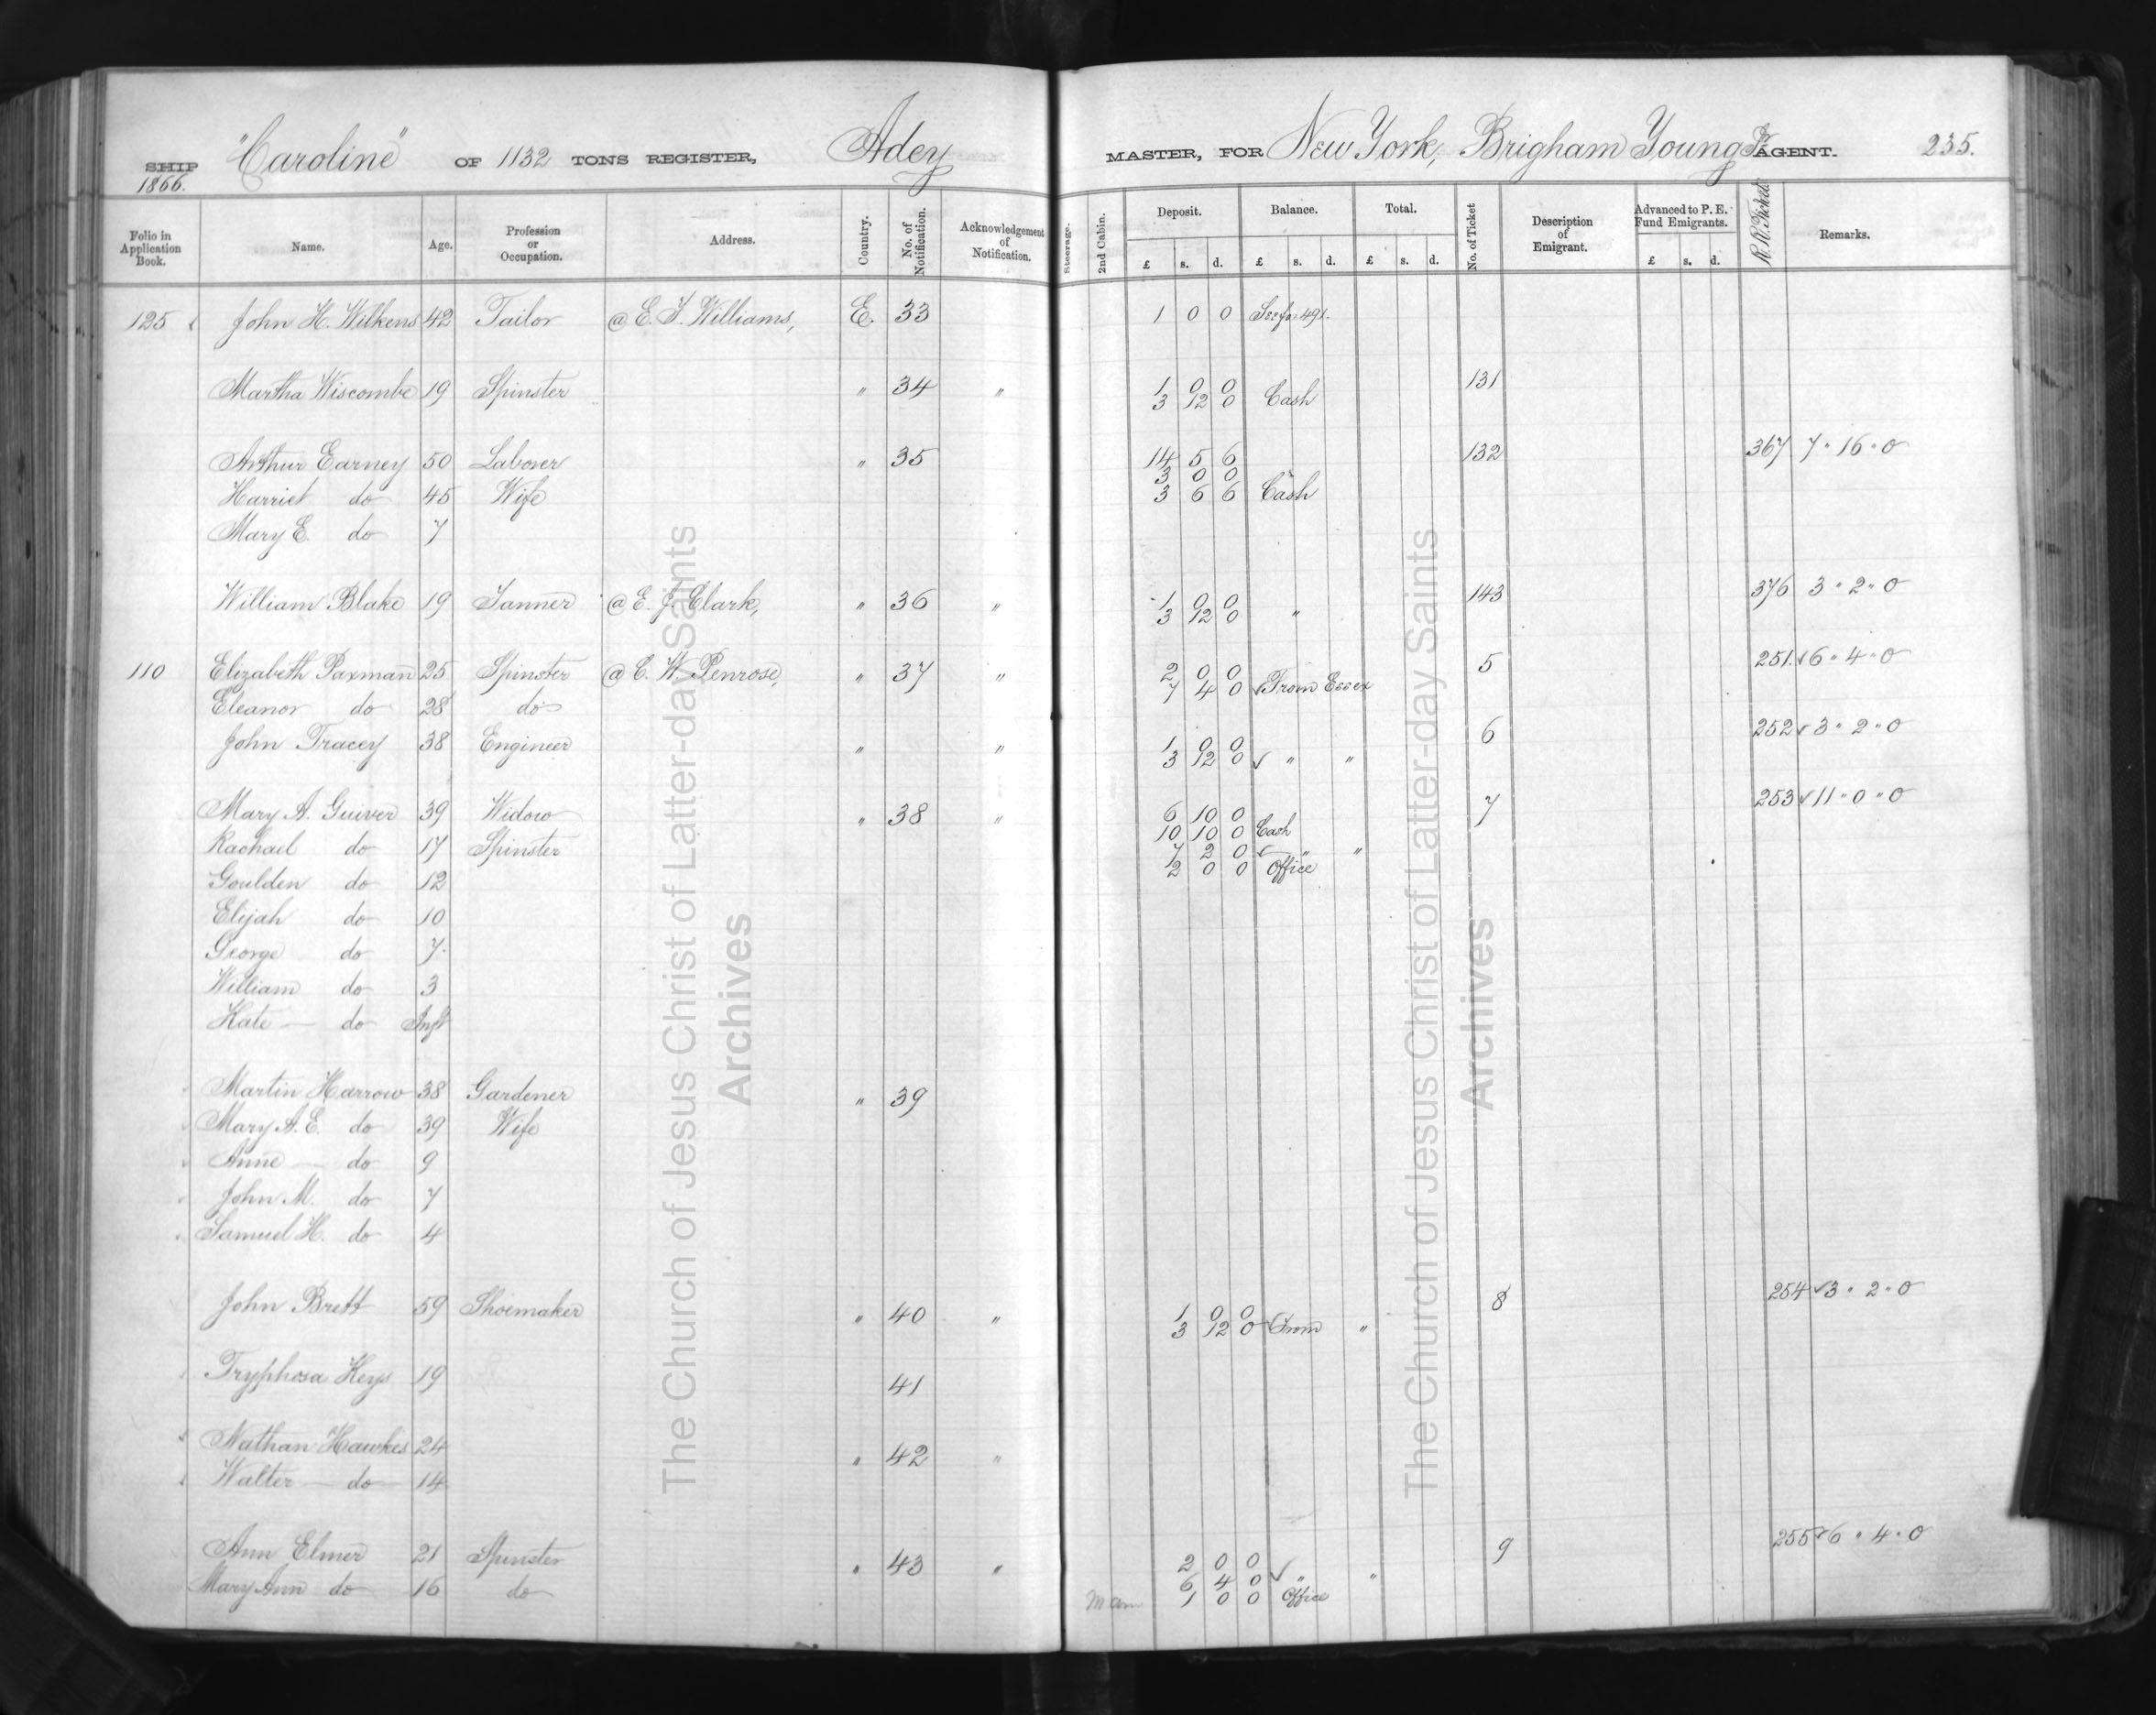 SHIP "Caroline" OF 1132 TONS REGISTER, Adey MASTER, FOR New York, Brigham Young Jr AGENT. 235.
1866.
Folio in Application Book. Name. Age. Profession or Occupation. Address. Country. No. of Notification. Acknowledgement of Notification. Steerage. 2nd Cabin. Deposit. Balance. Total. No. of Ticket Description of Emigrant. Advanced to P. E. Fund Emigrants. R.R. Ticket Remarks.
£ s. d. £ s. d. £ s. d. £ s. d.
125 John H. Wilkens 42 Tailor @ E. F. Williams, E. 33 1 0 0 See fo. 491.
Martha Wiscombe 19 Spinster " 34 " 1 0 0 131
3 12 0 Cash
Arthur Earney 50 Laborer " 35 14 5 6 132 367 7 " 16 " 0
3 0 0
Harriet do 45 Wife 3 6 6 Cash
Mary E. do 7
William Blake 19 Tanner @ E. J. Clark, " 36 " 1 0 0 143 376 3 " 2 " 0
3 12 0 "
110 Elizabeth Paxman 25 Spinster @ C. W. Penrose, " 37 " 2 0 0 5 251. ✓ 6 " 4 " 0
7 4 0 ✓ From Essex
Eleanor do 28 do
John Tracey 38 Engineer " " 1 0 0 6 252 ✓ 3 " 2 " 0
3 12 0 ✓ " "
Mary A. Guiver 39 Widow " 38 " 6 10 0 7 253 ✓ 11 " 0 " 0
10 10 0 Cash
Rachael do 17 Spinster 7 2 0 ✓ " "
2 0 0 Office
Goulden do 12
Elijah do 10
George do 7
William do 3
Kate do Inft
Martin Harrow 38 Gardener " 39
Mary A. E. do 39 Wife
Anne do 9
John M. do 7
Samuel H. do 4
John Brett 59 Shoemaker " 40 " 1 0 0 8 254 ✓ 3 " 2 " 0
3 12 0 ✓ From "
Tryphosa Keys 19 41
Nathan Hawkes 24 " 42 "
Walter do 14
Ann Elmer 21 Spinster " 43 " 2 0 0 9 255 ✓ 6 " 4 " 0
6 4 0 ✓ " "
Mary Ann do 16 do 1 0 0 Office
The Church of Jesus Christ of Latter-day Saints
Archives
The Church of Jesus Christ of Latter-day Saints
Archives